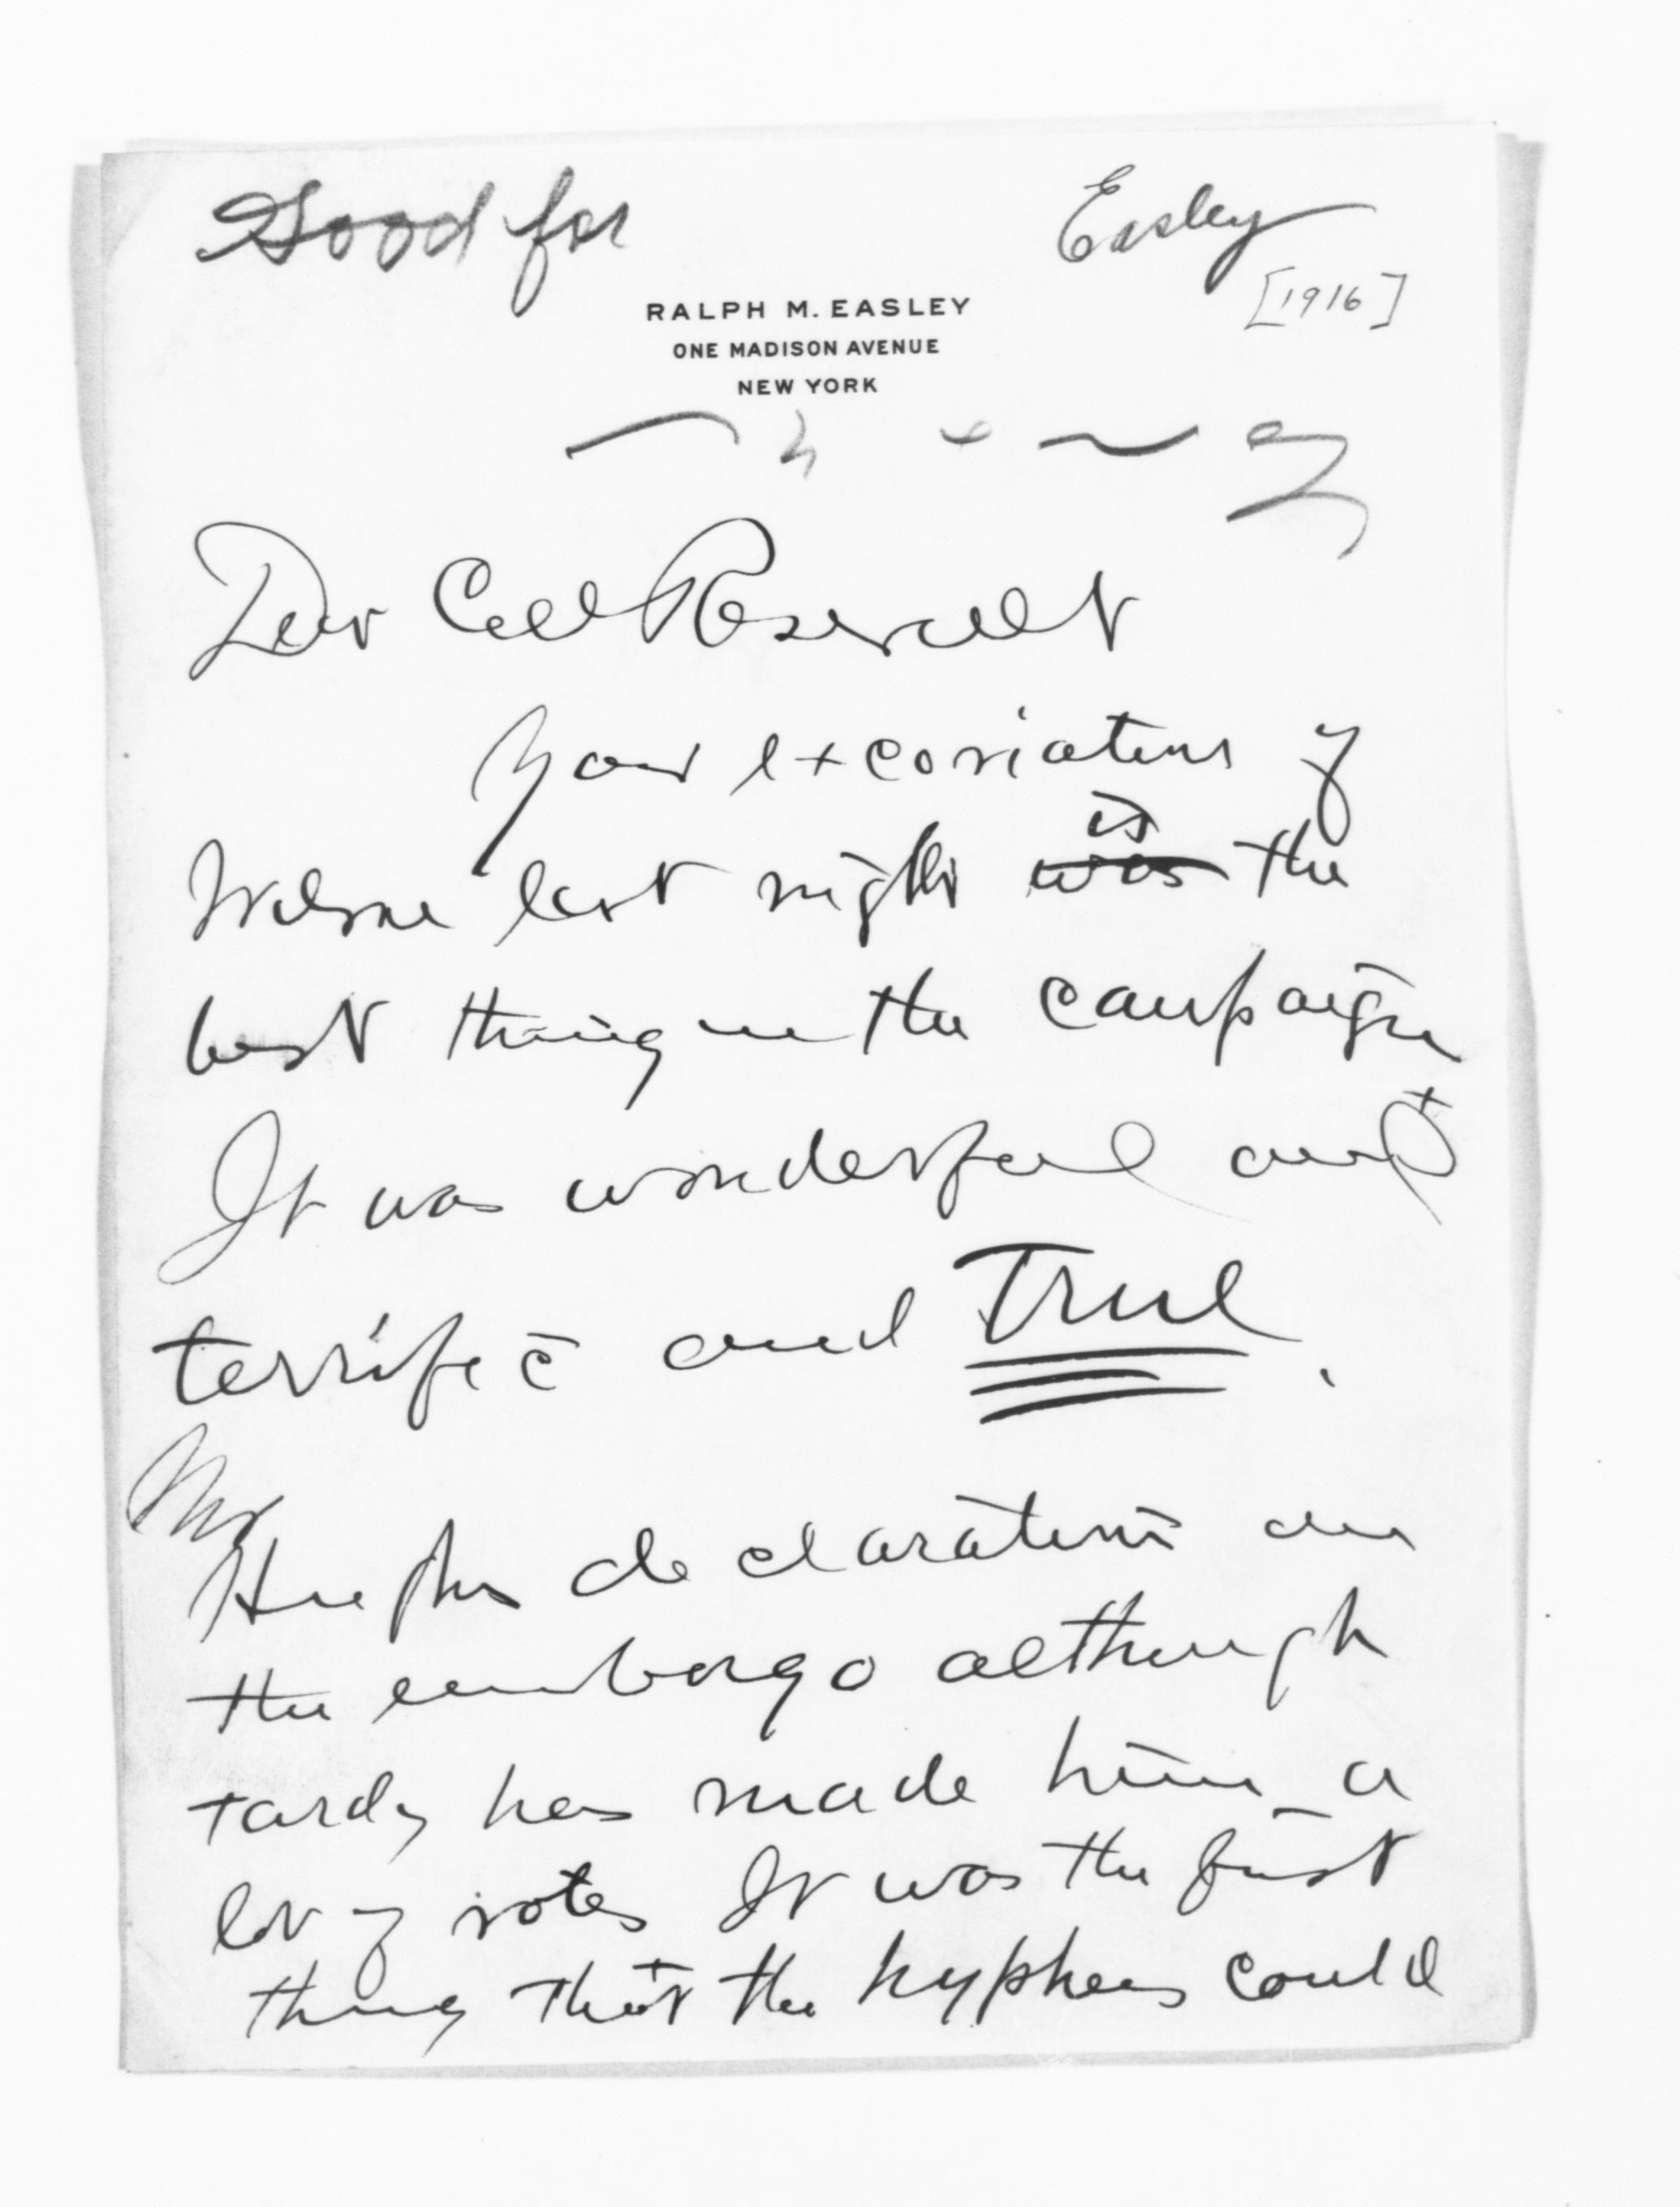 Good for
Easley
[1916]
RALPH M. EASLEY
ONE MADISON AVENUE
NEW YORK
Dear Col Roosevelt
Your excoriation of
Wilson last night was is the
best thing in the campaign
It was wonderful and
terrific and True.
Mr
Hughes declaration on
the embargo although
tardy has made him a
lot of votes It was the first
thing that the hyphens could